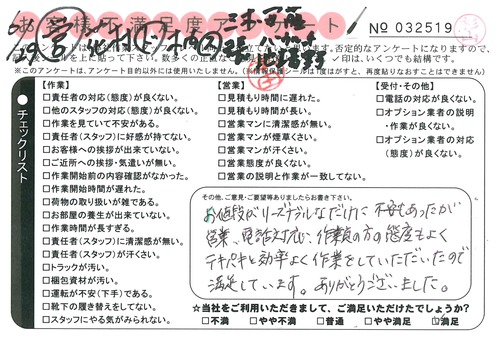 お客様不満足度アンケート
No 032519
否定的なアンケートになりますので、
✓印は、いくつでも結構です。
※このアンケートは、アンケート目的以外には使用いたしません。
チェックリスト
【作業】
□責任者の対応(態度)が良くない。
□他のスタッフの対応(態度)が良くない。
□作業を見ていて不安がある。
□責任者(スタッフ)に好感が持てない。
□お客様への挨拶が出来ていない。
□ご近所への挨拶・気遣いが無い。
□作業開始前の内容確認がなかった。
□作業開始時間が遅れた。
□荷物の取り扱いが雑である。
□お部屋の養生が出来ていない。
□作業時間が長すぎる。
□責任者(スタッフ)に清潔感が無い。
□責任者(スタッフ)が汗くさい。
□トラックが汚い。
□梱包資材が汚い。
□運転が不安(下手)である。
□靴下の履き替えをしてない。
□スタッフにやる気がみられない。
【営業】
□見積もり時間に遅れた。
□見積もり時間が長い。
□営業マンに清潔感が無い。
□営業マンが煙草くさい。
□営業マンが汗くさい。
□営業態度が良くない。
□営業の説明と作業が一致してない。
【受付・その他】
□電話の対応が良くない。
□オプション業者の説明
・作業が良くない。
□オプション業者の対応
(態度)が良くない。
その他、ご意見・ご要望等ありましたらお書き下さい。
お値段がリーズナブルなだけに不安もあったが
営業、電話対応、作業員の方の態度もよく
テキパキと効率よく作業をしていただいたので
満足しています。ありがとうございました。
☆当社をご利用いただきまして、ご満足いただけたでしょうか?
□不満 □やや不満 □普通 □やや満足 □満足